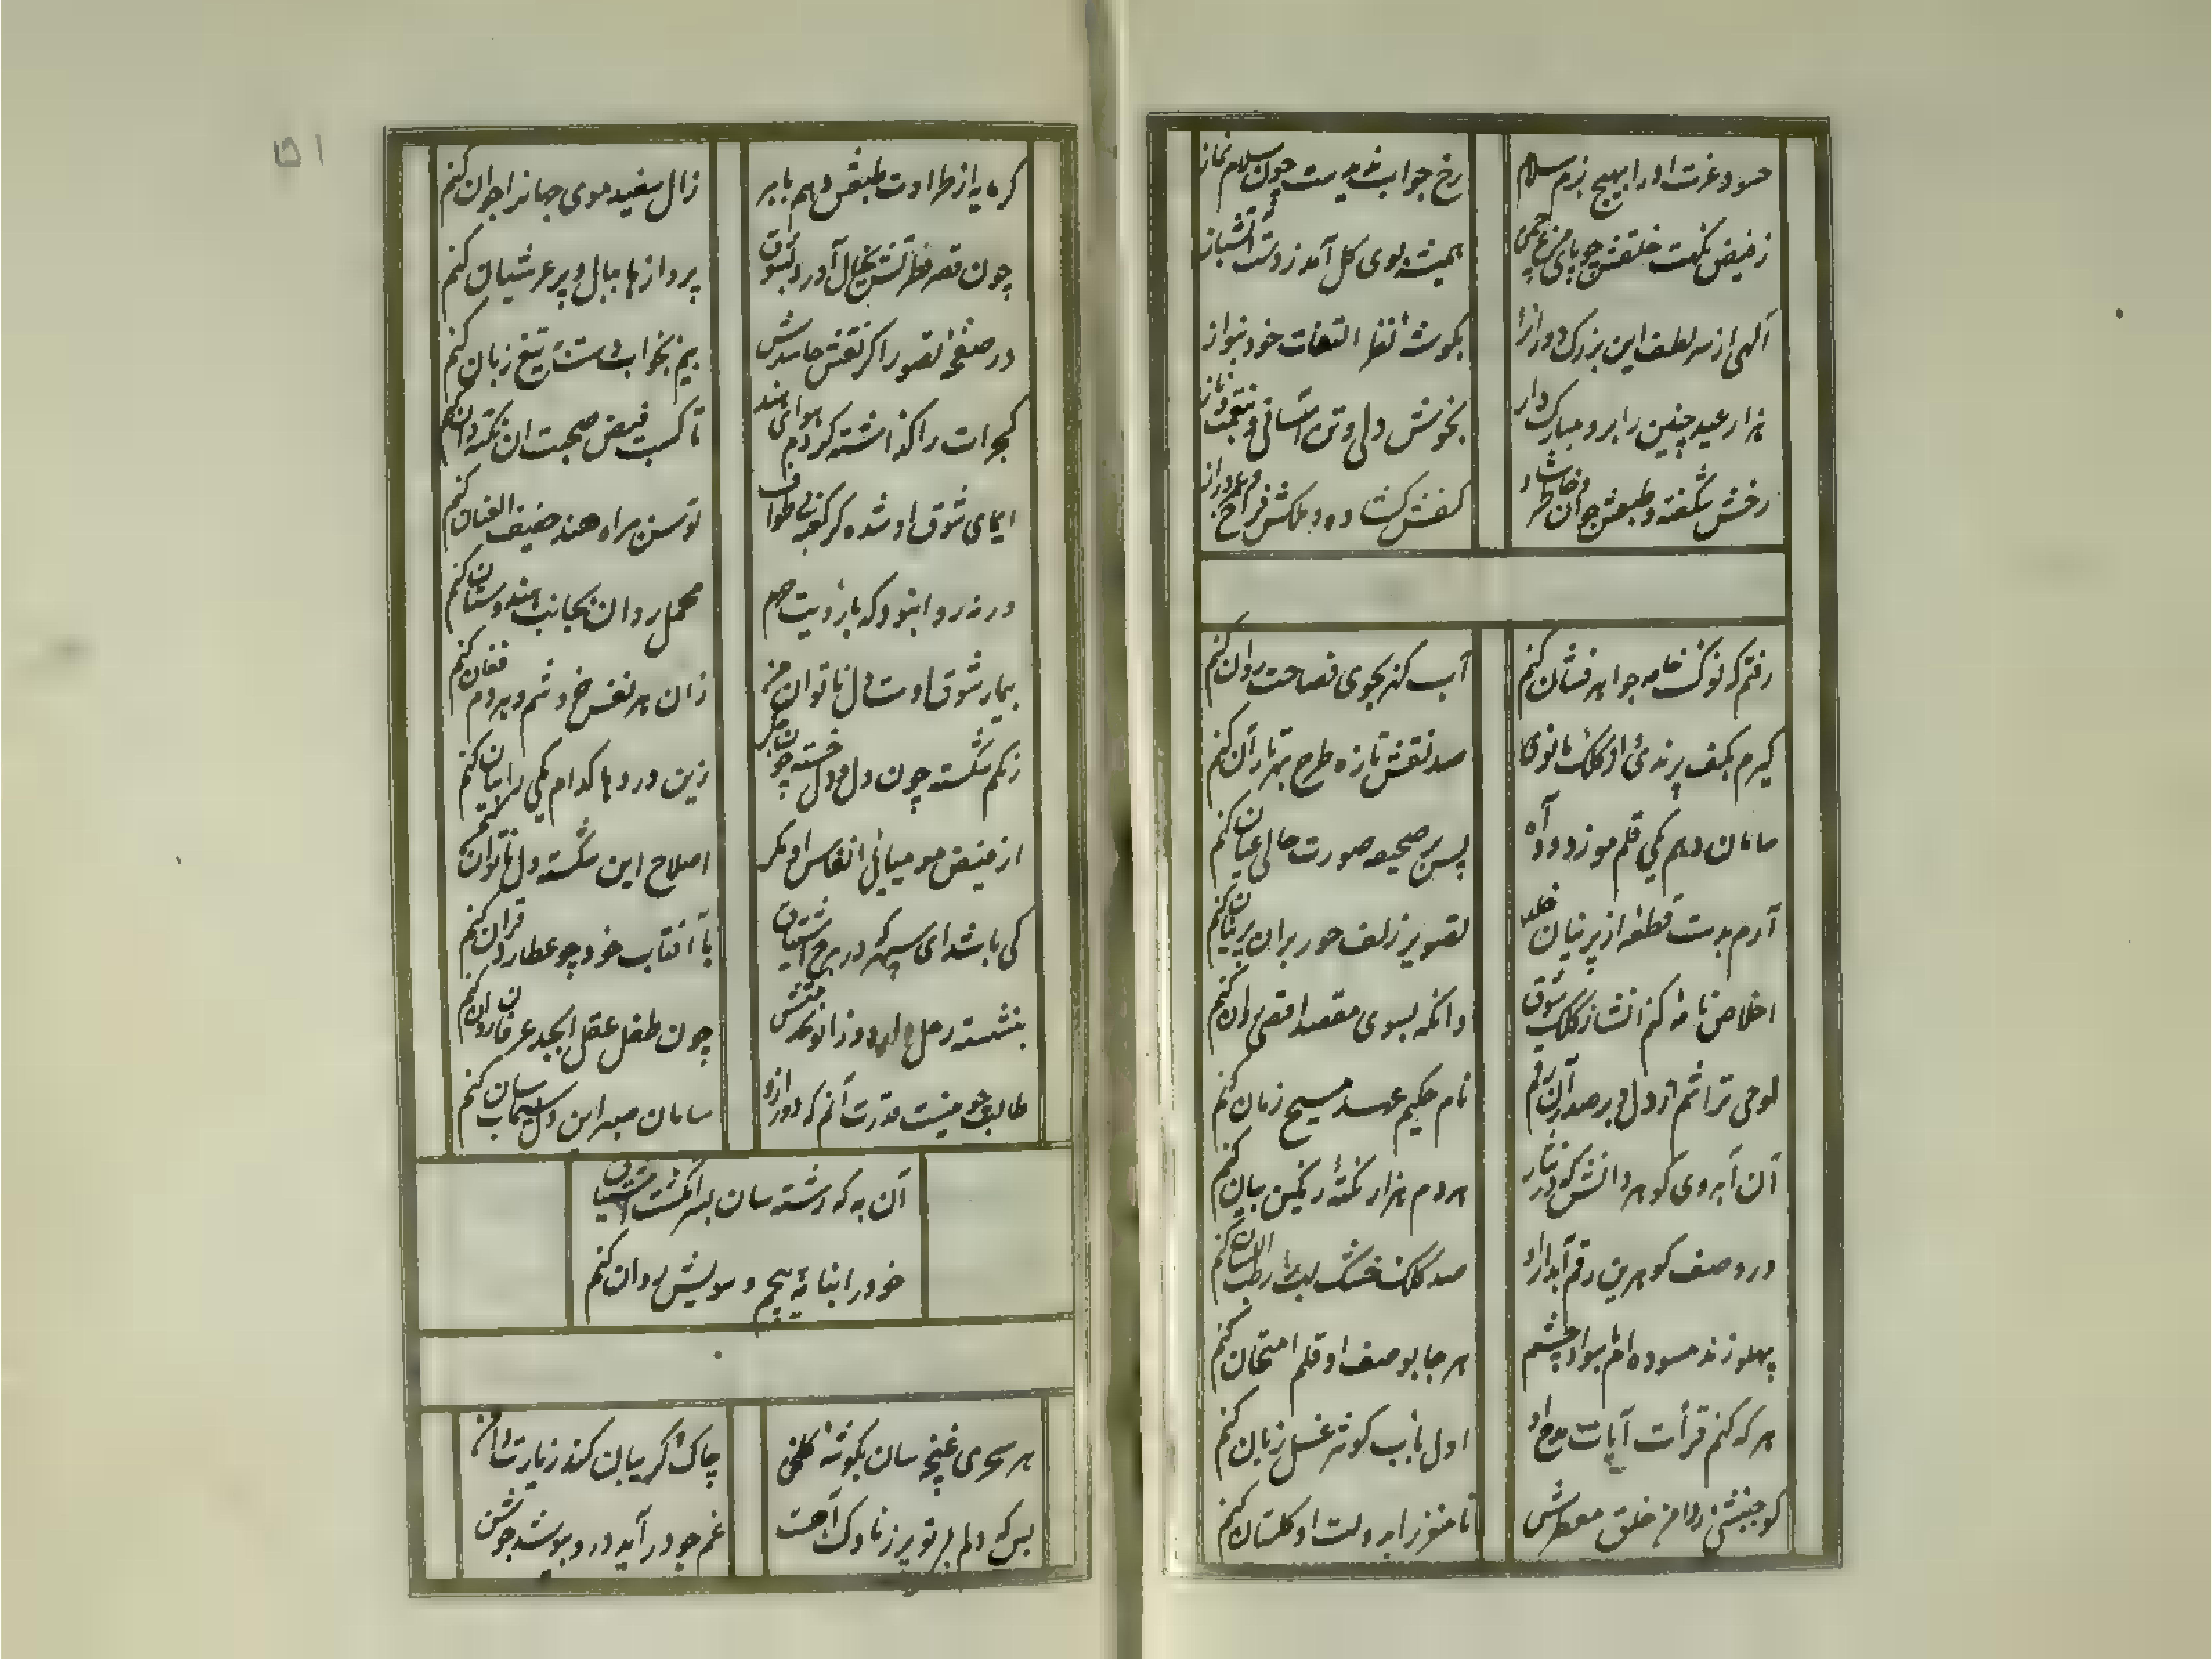 حسود عزت او را بهیچ بزم سلام
رخ جواب ندیدست چون سلام نماز
ز فیض نکهت خلقش چو پای مرغ چمن
همیشه بوی گل آمد ز دست
الهی از سر لطف این بزرگ دوران را
بگوشه نظر التفات خود بنواز
هزار عید چنین را برو مبارک دار
بخوش دلی و تن آسانی و
رخش شگفته و طبعش جوان و خاطر شاد
کفش گشاده و ملکش فراخ و عمر دراز
رفتم که نوک خامه جواهر فشان کنم
آب گهر بجوی فصاحت روان کنم
گیرم بکف پرندی او کلک مانوی
صد نقش تازه طرح بهر تار آن کنم
سامان دهم یکی قلم مو ز دود آه
پس بر صحیفه صورت حالی عیان کنم
آرم بدست قطعه از پرنیان خلد
تصویر زلف حور بران پرنیان کنم
اخلاص نامه کنم انشا ز کلک شوق
وانگه بسوی مقصد اقصی روان کنم
لوحی تراشم از دل و بر صدر آن رقم
نام حکیم عهد مسیح زمان کنم
آن آبروی گوهر دانش که در نثار
هر دم هزار نکته رنگین بیان کنم
در وصف گوهرین رقم آبدار او
صد کلک خشک لب را رطب اللسان کنم
پهلو زند مسوده ام با سواد چشم
هر جا بوصف او قلم امتحان کنم
هر گه کنم قرأت آیات مدح او
اول بآب کوثر غسل زبان کنم
کو جنبشی ز دامن خلق معطرش
تا مغز را بدولت او گلستان کنم
گر مایه از طراوت طبعش دهم بابر
زال سفید موی جهانرا جوان کنم
چون قصر فطرتش بخیال آورد
پروازها ببال و پر عرشیان کنم
در صفحه تصور اگر نقش حاسدش
بینم بخواب دست به تیغ زبان کنم
گجرات را گذاشته کردم هوای هند
تا کسب فیض صحبت آن نکته دان کنم
ایمای شوق او شده کز کعبه طواف
توسن براه هند خفیف العنان کنم
ورنه روا نبود که باز از بیت
محمل روان بجانب هندوستان کنم
بیمار شوق اوست دل ناتوان من
زان هر نفس خروشم و هر دم فغان کنم
رنگم شکسته چون دل و دل خسته چون جگر
زین دردها کدام یکی را بیان کنم
از فیض مومیائی انفاس او مگر
اصلاح این شکسته دل ناتوان کنم
کی باشد ای سپهر که در برج اشتیاق
با آفتاب خود چو عطارد قران کنم
بنشسته رحل وار دو زانو بخدمتش
چون طفل عقل ابجد عرفان روان کنم
طالب چو نیست قدرت آنم که دور ازو
سامان صبر این دل سیماب سان کنم
آن به که رشته سان بسر انگشت اشتیاق
خود را بنامه پیچم و سویش روان کنم
هر سحری غنچه سان بگوشه گلخن
چاک گریبان کند زیارت دامن
بس که دلم پر تو پر ز ناوک آهست
غم چو درآید درو بپوشد جوشن
۱۵